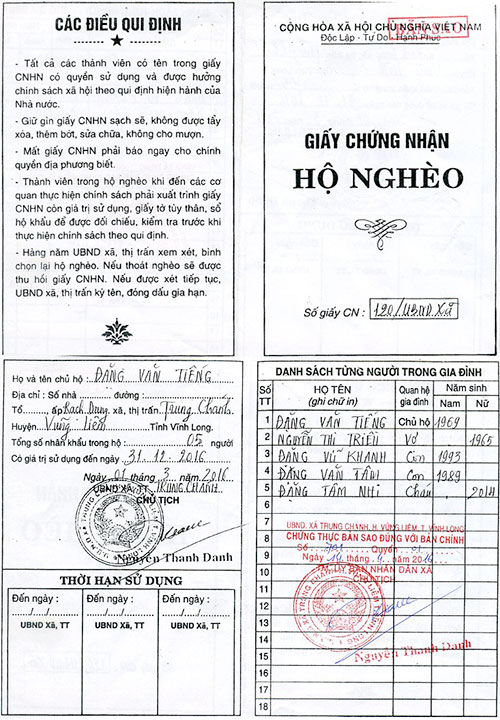 CÁC ĐIỀU QUI ĐỊNH
- Tất cả các thành viên có tên trong giấy
CNHN có quyền sử dụng và được hưởng
chính sách xã hội theo qui định hiện hành của
Nhà nước.
- Giữ gìn giấy CNHN sạch sẽ, không được tẩy
xóa, thêm bớt, sửa chữa, không cho mượn.
- Mất giấy CNHN phải báo ngay cho chính
quyền địa phương biết.
- Thành viên trong hộ nghèo khi đến các cơ
quan thực hiện chính sách phải xuất trình giấy
CNHN còn giá trị sử dụng, giấy tờ tùy thân, sổ
hộ khẩu để được đối chiếu, kiểm tra trước khi
thực hiện chính sách theo qui định.
- Hàng năm UBND xã, thị trấn xem xét, bình
chọn lại hộ nghèo. Nếu thoát nghèo sẽ được
thu hồi giấy CNHN. Nếu được xét tiếp tục,
UBND xã, thị trấn ký tên, đóng dấu gia hạn.
CỘNG HÒA XÃ HỘI CHỦ NGHĨA VIỆT NAM
Độc Lập - Tự Do - Hạnh Phúc
BẢN SAO
GIẤY CHỨNG NHẬN
HỘ NGHÈO
Số giấy CN : 120/UBND.Xã
Họ và tên chủ hộ : ĐẶNG VĂN TIẾNG
Địa chỉ : Số nhà đường :
Tổ ấp Rạch Dung, xã, thị trấn Trung Chánh
Huyện Vũng Liêm Tỉnh Vĩnh Long.
Tổng số nhân khẩu trong hộ : 05 người
Có giá trị sử dụng đến ngày 31.12.2016
Ngày 01 tháng 3 năm 2016
UBND XÃ, TT TRUNG CHÁNH
CHỦ TỊCH
Nguyễn Thanh Danh
THỜI HẠN SỬ DỤNG
Đến ngày : Đến ngày : Đến ngày :
UBND Xã, TT UBND Xã, TT UBND Xã, TT
DANH SÁCH TỪNG NGƯỜI TRONG GIA ĐÌNH
Số TT HỌ TÊN (ghi chữ in) Quan hệ gia đình Năm sinh
Nam Nữ
1 ĐẶNG VĂN TIẾNG Chủ hộ 1969
2 NGUYỄN THỊ TRIỀU Vợ 1965
3 ĐẶNG VŨ KHANH Con 1993
4 ĐẶNG VĂN TÂM Con 1989
5 ĐẶNG TÂM NHI Cháu 2014
6
7 UBND. XÃ TRUNG CHÁNH, H. VŨNG LIÊM, T. VĨNH LONG
8 CHỨNG THỰC BẢN SAO ĐÚNG VỚI BẢN CHÍNH
Số Quyển 01
9 Ngày 14 tháng 4 năm 2016
10 TM. ỦY BAN NHÂN DÂN XÃ
CHỦ TỊCH
11
12
13
14
Nguyễn Thanh Danh
15
16
17
18